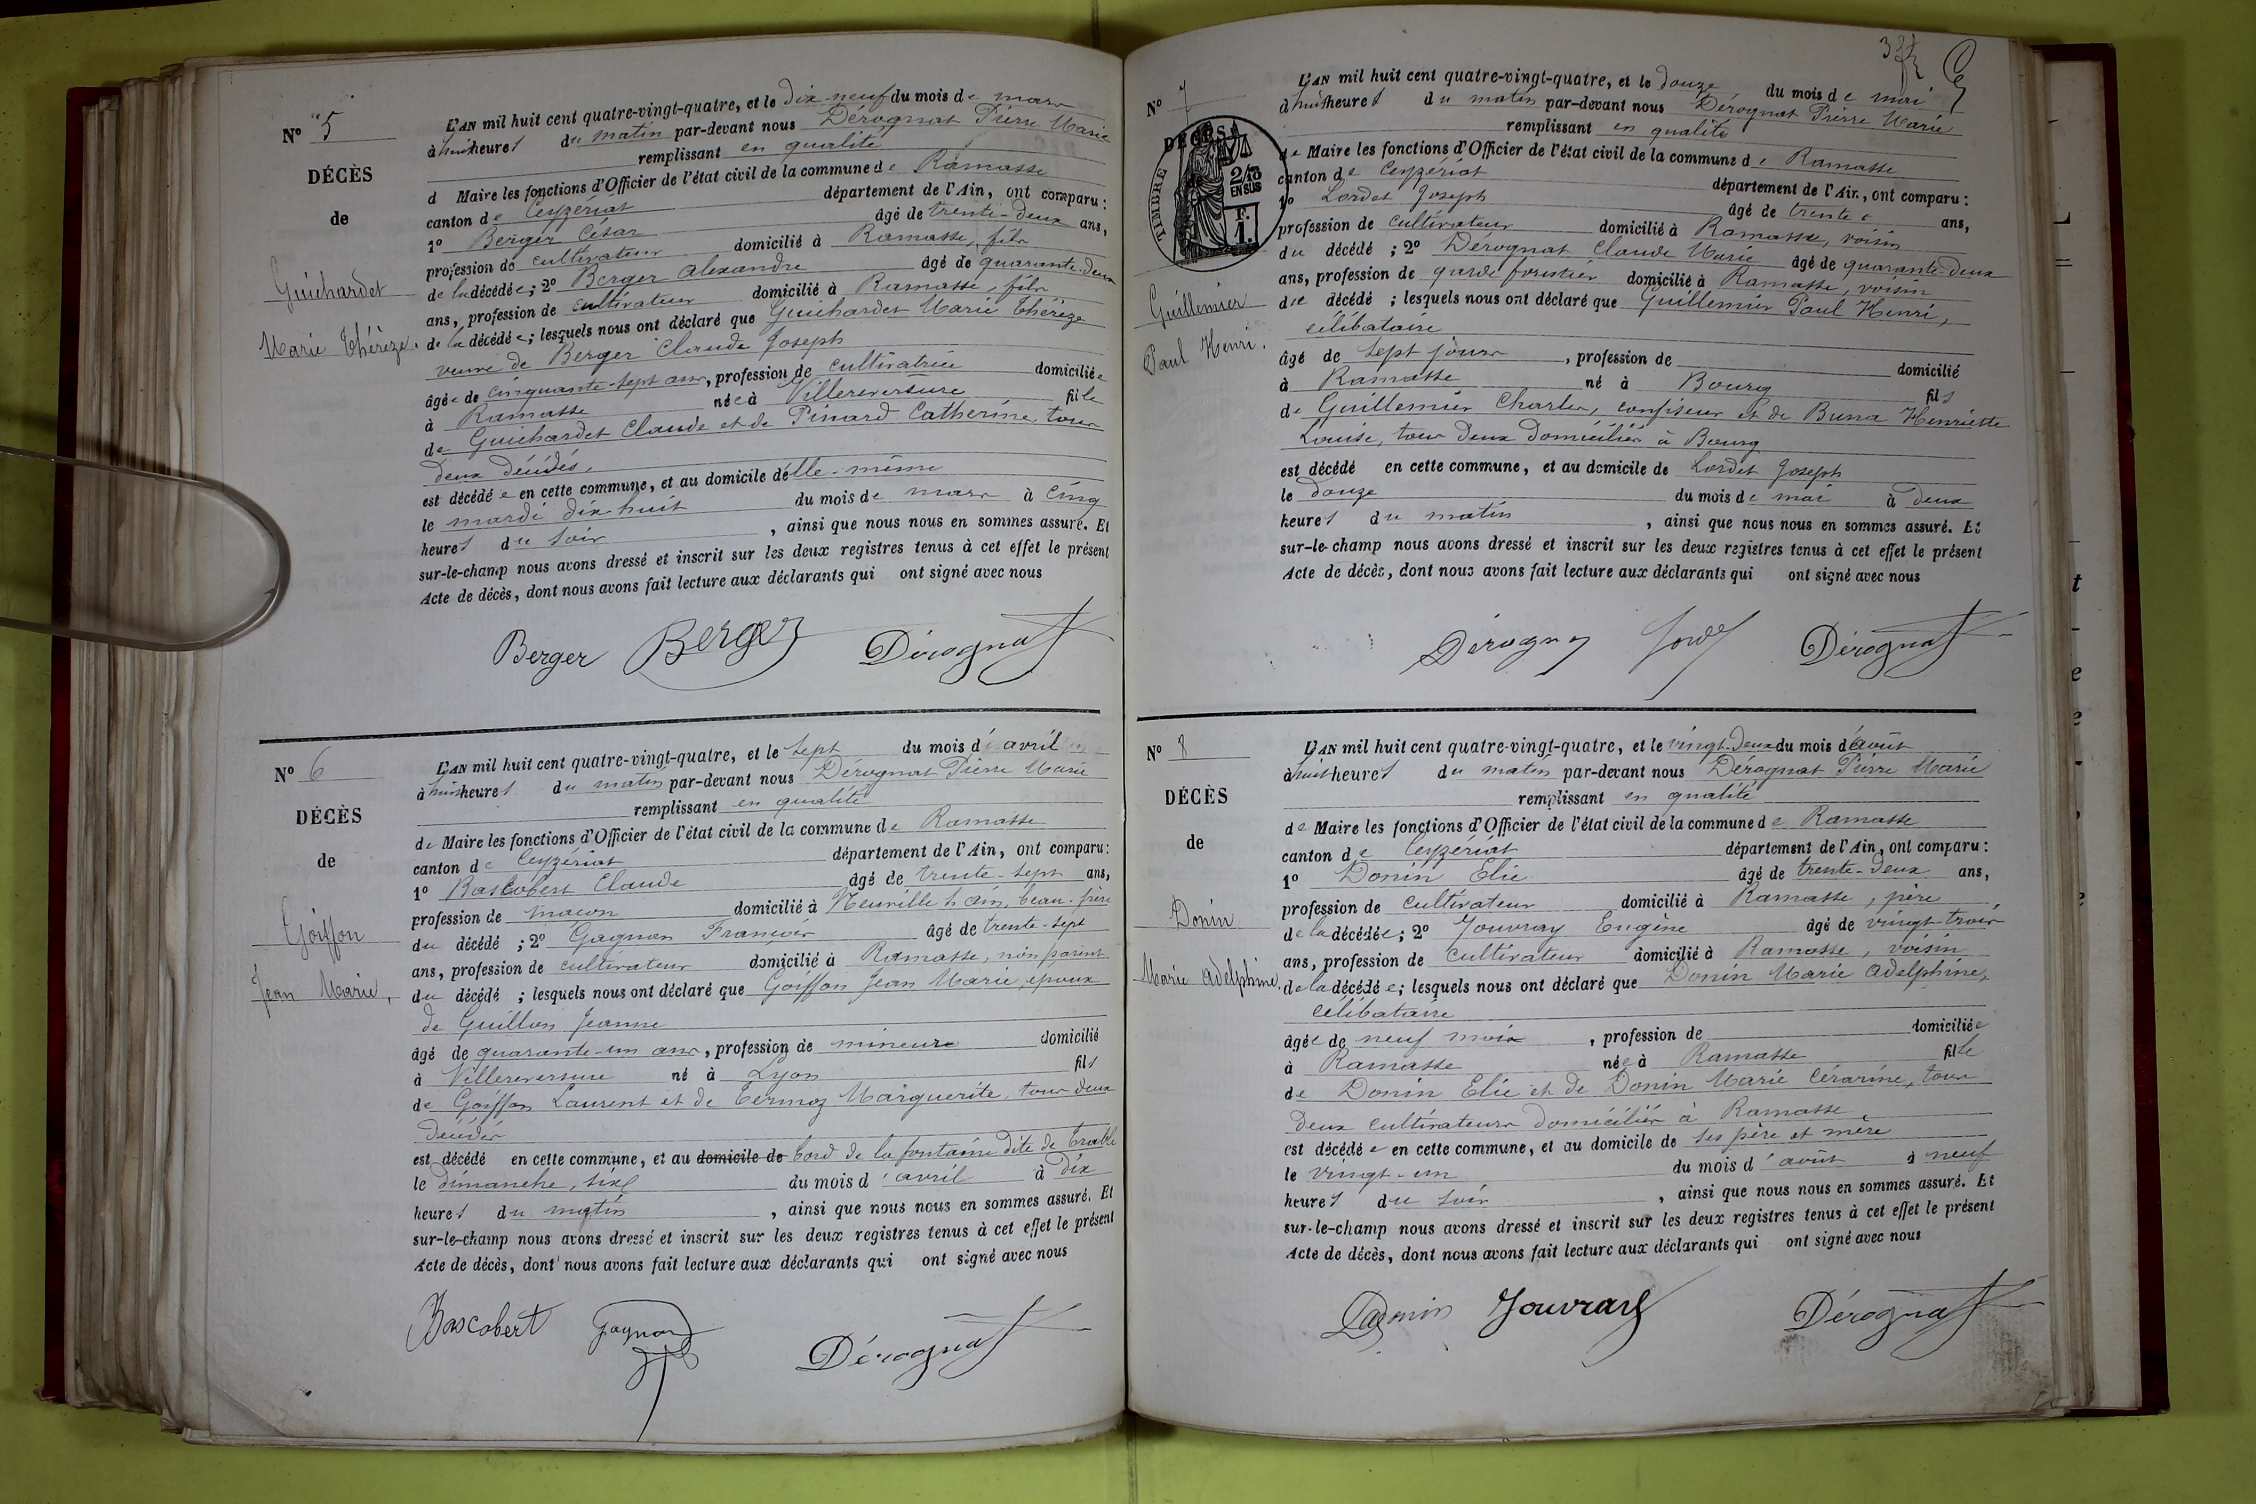 N° 5
DÉCÈS
de
Guichardet
Marie Thérèze.
L'AN mil huit cent quatre-vingt-quatre, et le dix neuf du mois de mars
à huit heures du matin par-devant nous Dérognat Pierre Marie
remplissant en qualité
d Maire les fonctions d'Officier de l'état civil de la commune de Ramasse
canton de Ceyzériat département de l'Ain, ont comparu:
1° Berger César âgé de trente-deux ans,
profession de cultivateur domicilié à Ramasse, fils
de la décédée; 2° Berger Alexandre âgé de quarante-deux
ans, profession de cultivateur domicilié à Ramasse, fils
de la décédée; lesquels nous ont déclaré que Guichardet Marie Thérèze
veuve de Berger Claude Joseph
âgée de cinquante-sept ans, profession de cultivatrice domiciliée
à Ramasse née à Villereversure fille
de Guichardet Claude et de Pinard Catherine, tous
deux décédés.
est décédée en cette commune, et au domicile d'elle-même
le mardi dix-huit du mois de mars à cinq
heures du soir, ainsi que nous nous en sommes assuré. Et
sur-le-champ nous avons dressé et inscrit sur les deux registres tenus à cet effet le présent
Acte de décès, dont nous avons fait lecture aux déclarants qui ont signé avec nous
Berger Berger Dérognat
N° 6
DÉCÈS
de
Goiffon
Jean Marie.
L'AN mil huit cent quatre-vingt-quatre, et le sept du mois d'avril
à huit heures du matin par-devant nous Dérognat Pierre Marie
remplissant en qualité
de Maire les fonctions d'Officier de l'état civil de la commune de Ramasse
canton de Ceyzériat département de l'Ain, ont comparu:
1° Bascobert Claude âgé de trente-sept ans,
profession de maçon domicilié à Neuville s ain, beau-frère
du décédé; 2° Gagnon François âgé de trente-sept
ans, profession de cultivateur domicilié à Ramasse, non parent
du décédé; lesquels nous ont déclaré que Goiffon Jean Marie, époux
de Guillon Jeanne
âgé de quarante-un ans, profession de mineur domicilié
à Villereversure né à Lyon fils
de Goiffon Laurent et de Termoz Marguerite, tous deux
décédés
est décédé en cette commune, et au domicile de bord de la fontaine dite de
le dimanche, six du mois d'avril à dix
heures du matin, ainsi que nous nous en sommes assuré. Et
sur-le-champ nous avons dressé et inscrit sur les deux registres tenus à cet effet le présent
Acte de décès, dont nous avons fait lecture aux déclarants qui ont signé avec nous
Bascobert Gagnon Dérognat
N° 7
DÉCÈS
TIMBRE
2/10
EN SUS
F.
1
Guillemier
Paul Henri.
L'AN mil huit cent quatre-vingt-quatre, et le douze du mois de mai
à huit heures du matin par-devant nous Dérognat Pierre Marie
remplissant en qualité
de Maire les fonctions d'Officier de l'état civil de la commune de Ramasse
canton de Ceyzériat département de l'Ain, ont comparu:
1° Lordet Joseph âgé de trente ans,
profession de cultivateur domicilié à Ramasse, voisin
du décédé; 2° Dérognat Claude Marie âgé de quarante-deux
ans, profession de garde forestier domicilié à Ramasse, voisin
du décédé; lesquels nous ont déclaré que Guillemier Paul Henri,
célibataire
âgé de sept jours, profession de domicilié
à Ramasse né à Bourg fils
de Guillemier Charles, confiseur et de Buna Henriette
Louise, tous deux domiciliés à Bourg
est décédé en cette commune, et au domicile de Lordet Joseph
le douze du mois de mai à deux
heures du matin, ainsi que nous nous en sommes assuré. Et
sur-le-champ nous avons dressé et inscrit sur les deux registres tenus à cet effet le présent
Acte de décès, dont nous avons fait lecture aux déclarants qui ont signé avec nous
Dérognat
N° 8
DÉCÈS
de
Donin
Marie Adelphine.
L'AN mil huit cent quatre-vingt-quatre, et le vingt-deux du mois d'août
à huit heures du matin par-devant nous Dérognat Pierre Marie
remplissant en qualité
de Maire les fonctions d'Officier de l'état civil de la commune de Ramasse
canton de Ceyzériat département de l'Ain, ont comparu:
1° Donin Elie âgé de trente-deux ans,
profession de cultivateur domicilié à Ramasse, père
de la décédée; 2° Jouvray Eugène âgé de vingt-trois
ans, profession de cultivateur domicilié à Ramasse, voisin
de la décédée; lesquels nous ont déclaré que Donin Marie Adelphine,
célibataire
âgée de neuf mois, profession de domiciliée
à Ramasse née à Ramasse fille
de Donin Elie et de Donin Marie Cézarine, tous
deux cultivateurs domiciliés à Ramasse.
est décédée en cette commune, et au domicile de ses père et mère
le vingt-un du mois d'août à neuf
heures du soir, ainsi que nous nous en sommes assuré. Et
sur-le-champ nous avons dressé et inscrit sur les deux registres tenus à cet effet le présent
Acte de décès, dont nous avons fait lecture aux déclarants qui ont signé avec nous
Donin Jouvray Dérognat